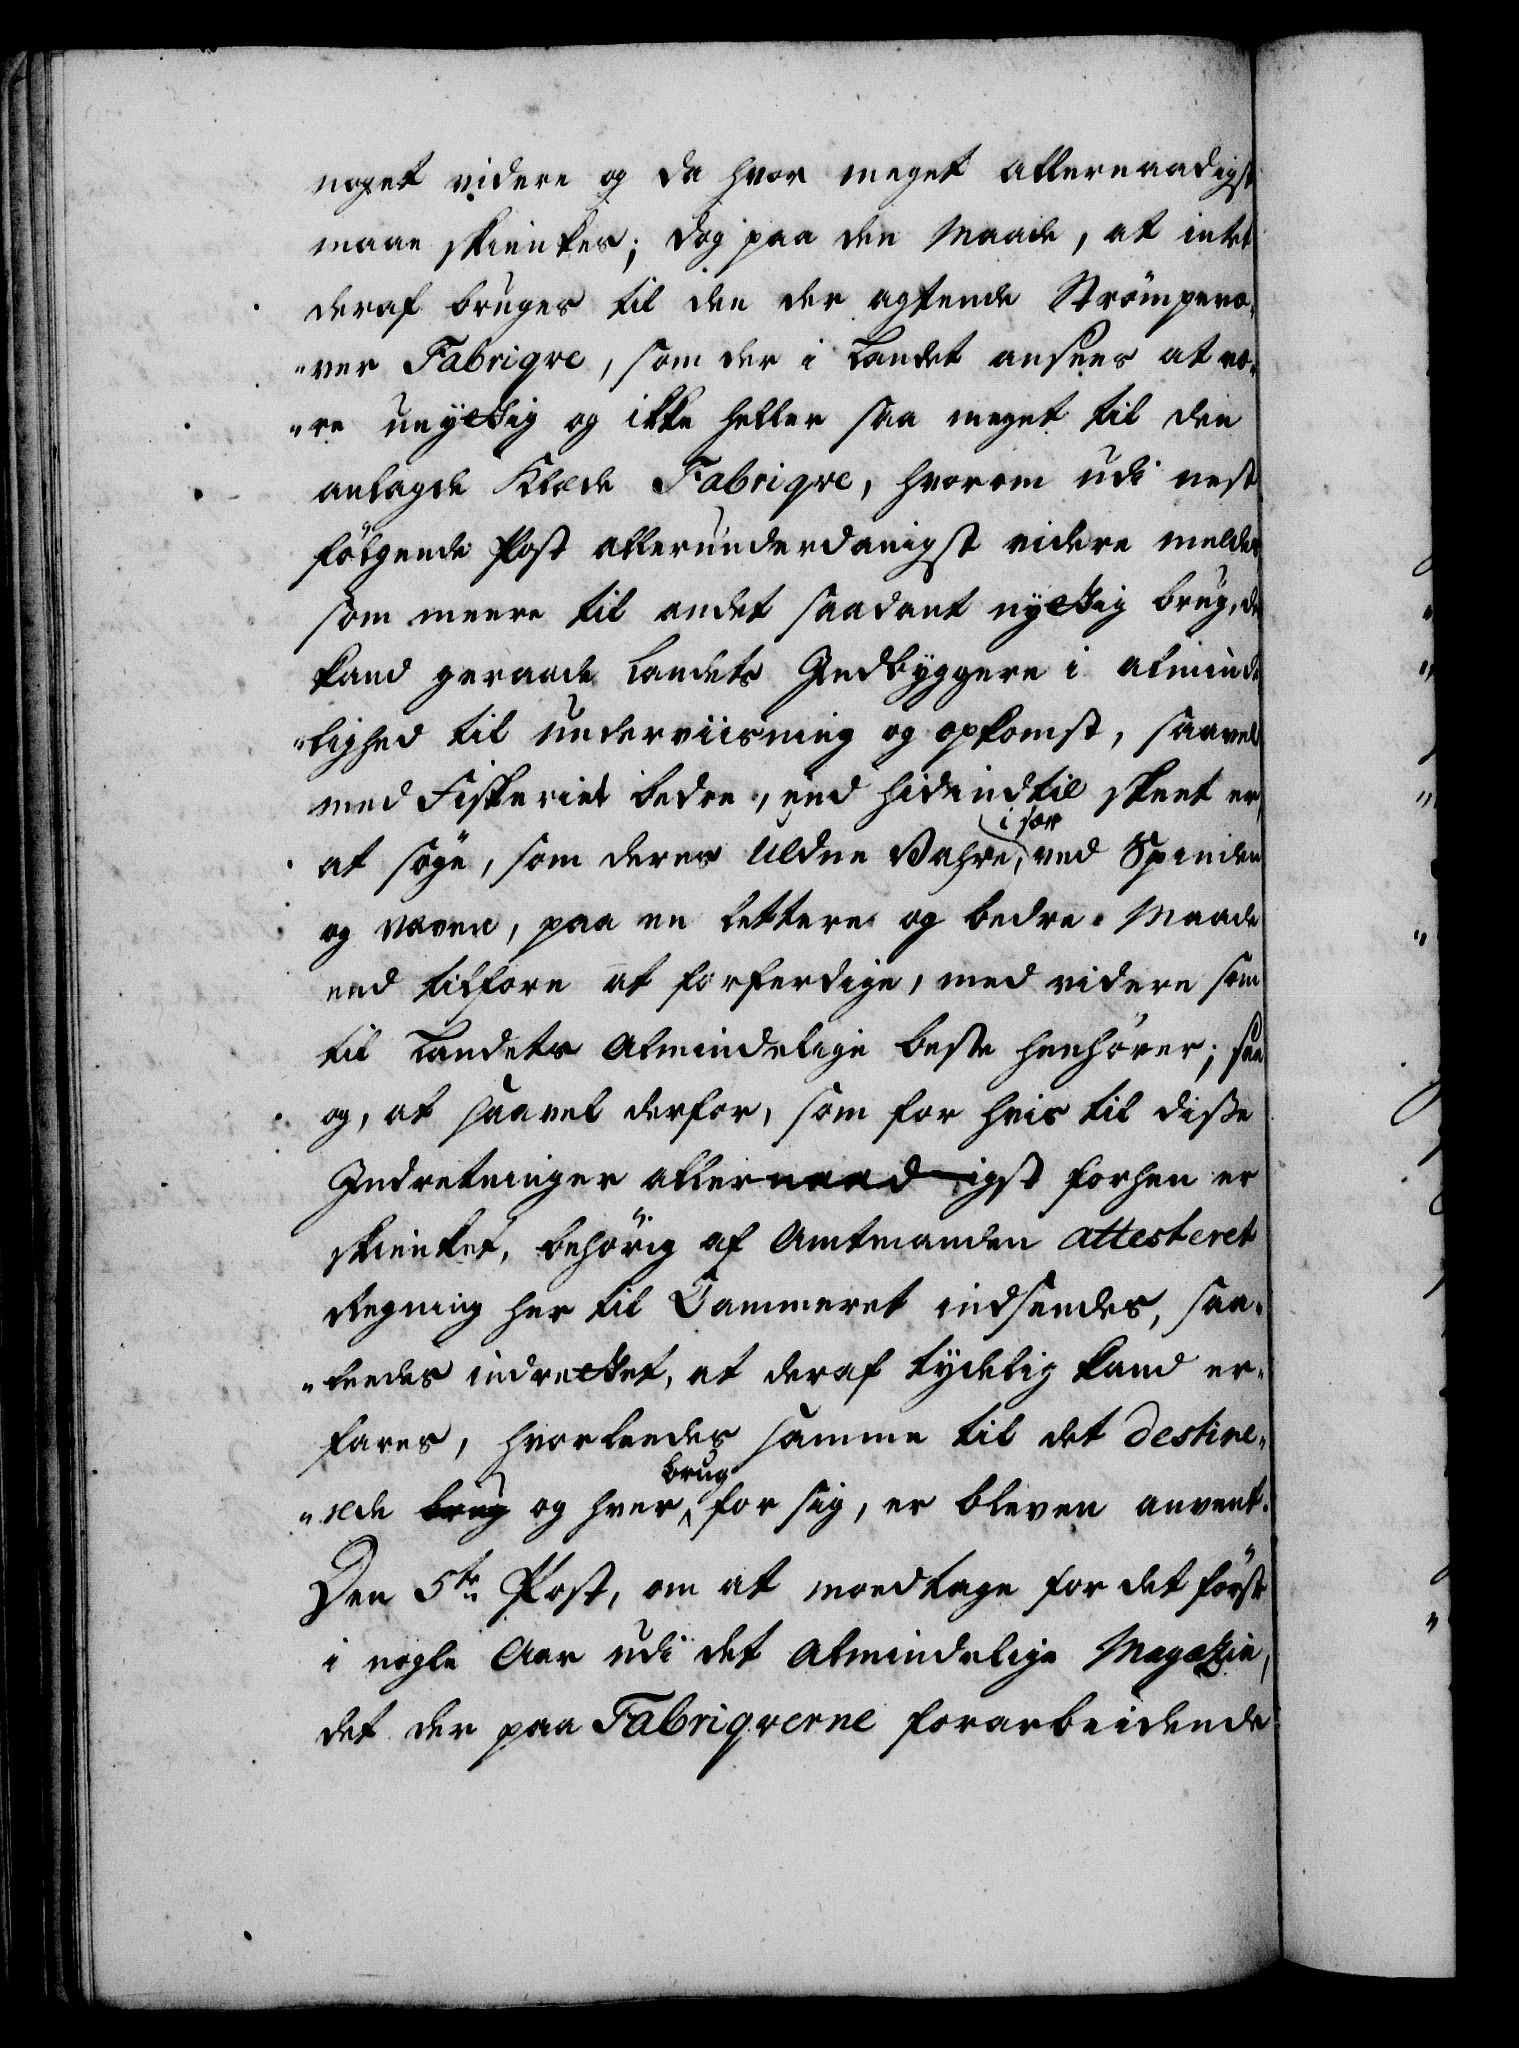 noget videre og da hvor meget allernaadigst
maae skienkes; dog paa den Maade, at intet
deraf bruges til den der agtende Strömpevæ-
"ver Fabriqve, som der i Landet ansees at væ-
"re unyttig og ikke heller saa meget til den
anlagde Klæde Fabriqve, hvorom udi nest
fölgende Post allerunderdanigst videre meldes
som meere til andet saadant nyttig brug, der
kand geraade Landets Indbyggere i alminde
"lighed til underviisning og opkomst, saavel
med Fiskeriet bedre, end hidindtil skeet er,
i sær
at søge, som deres Uldne Vahre, ved Spinden
og Væven, paa en lettere og bedre Maade
end tilforn at forferdige, med videre som
til Landets Almindelige beste henhörer; saa
og, at saavel derfor, som for hvis til disse
Indretninger allernaadigst forhen er
skienket, behörig af Amtmanden attesteret
Regning her til Cammeret indsendes, saa-
"leedes indrettet, at deraf tydelig kand er-
fares, hvorleedes samme til det destine-
brug
"rede brug og hver for sig, er bleven anvent.
Den 5te Post, om at modtage for det förste
i nogle Aar udi det Almindelige Magazin,
det der paa Fabriqverne forarbeidende